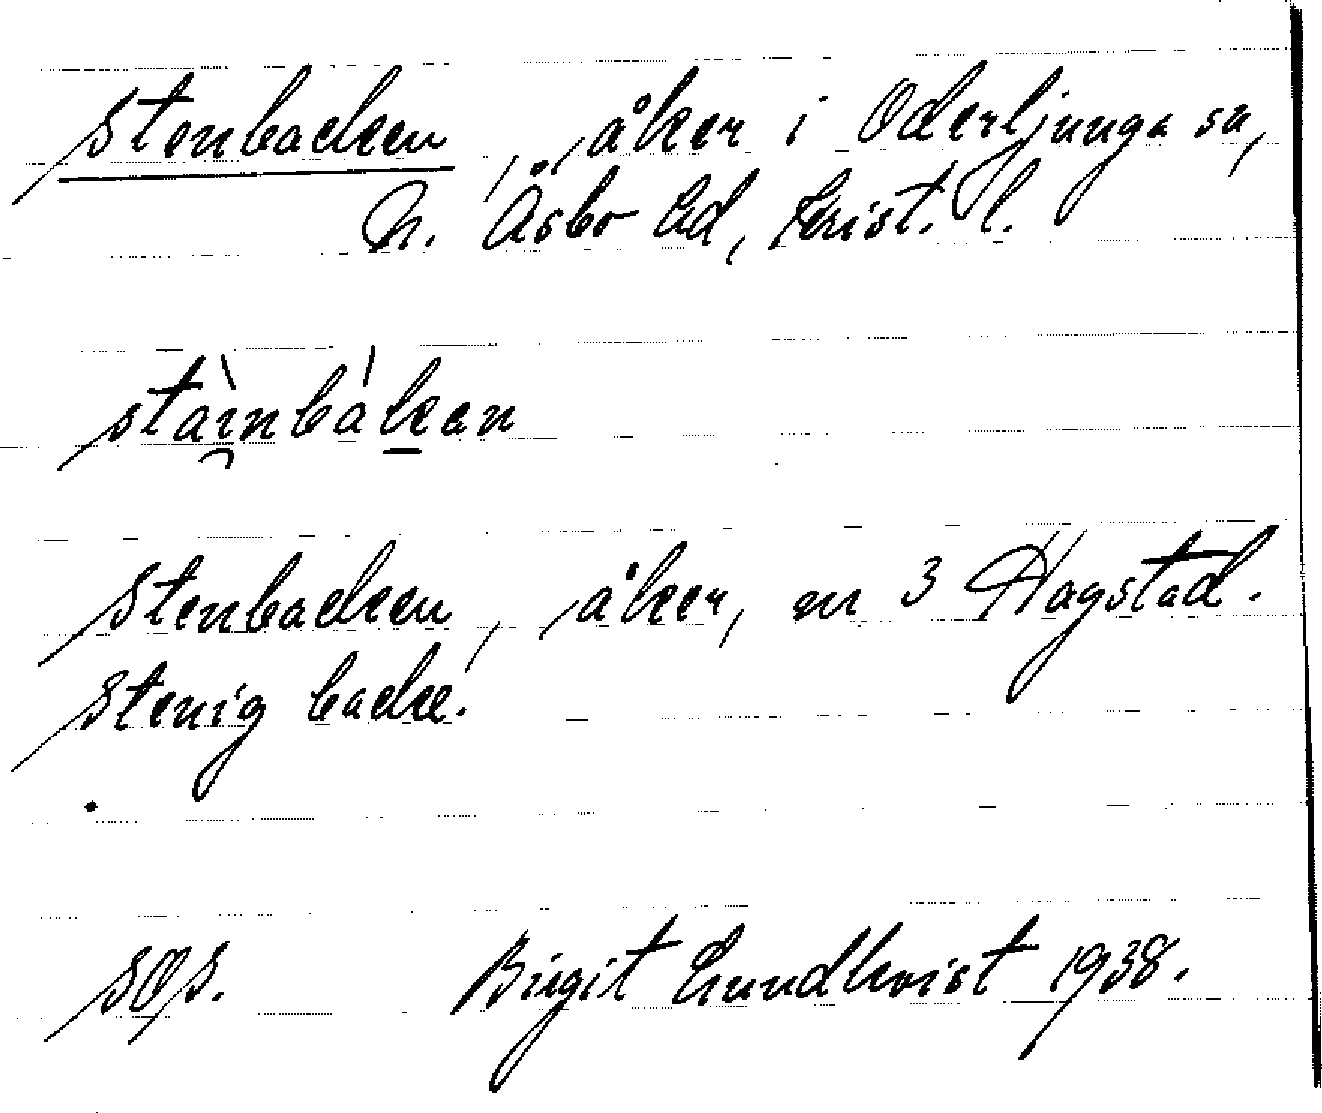 Stenbacken, åker i Oderljunga sn,
N. Åsbo hd, Krist. l.
stàɪ̯nbáḵan
Stenbacken, åker, nr 3 Hagstad.
Stenig backe.
SOS. Birgit Lundkvist 1938.